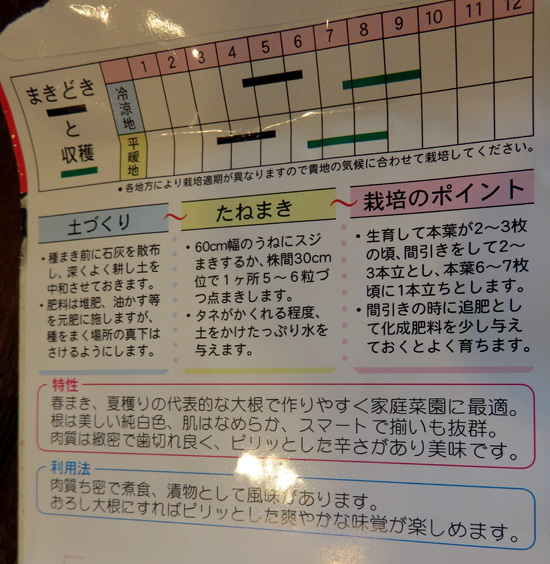 1 2 3 4 5 6 7 8 9 10 11 12
まきどき
と
収穫
冷涼地
平暖地
・各地方により栽培適期が異なりますので貴地の気候に合わせて栽培してください。
土づくり
・種まき前に石灰を散布
し、深くよく耕し土を
中和させておきます。
・肥料は堆肥、油かす等
を元肥に施しますが、
種をまく場所の真下は
さけるようにします。
〜
たねまき
・60cm幅のうねにスジ
まきするか、株間30cm
位で1ヶ所5〜6粒づ
つ点まきします。
・タネがかくれる程度、
土をかけたっぷり水を
与えます。
〜
栽培のポイント
・生育して本葉が2〜3枚
の頃、間引きをして2〜
3本立とし、本葉6〜7枚
頃に1本立ちとします。
・間引きの時に追肥とし
て化成肥料を少し与え
ておくとよく育ちます。
特性
春まき、夏穫りの代表的な大根で作りやすく家庭菜園に最適。
根は美しい純白色、肌はなめらか、スマートで揃いも抜群。
肉質は緻密で歯切れ良く、ピリッとした辛さがあり美味です。
利用法
肉質ち密で煮食、漬物として風味があります。
おろし大根にすればピリッとした爽やかな味覚が楽しめます。